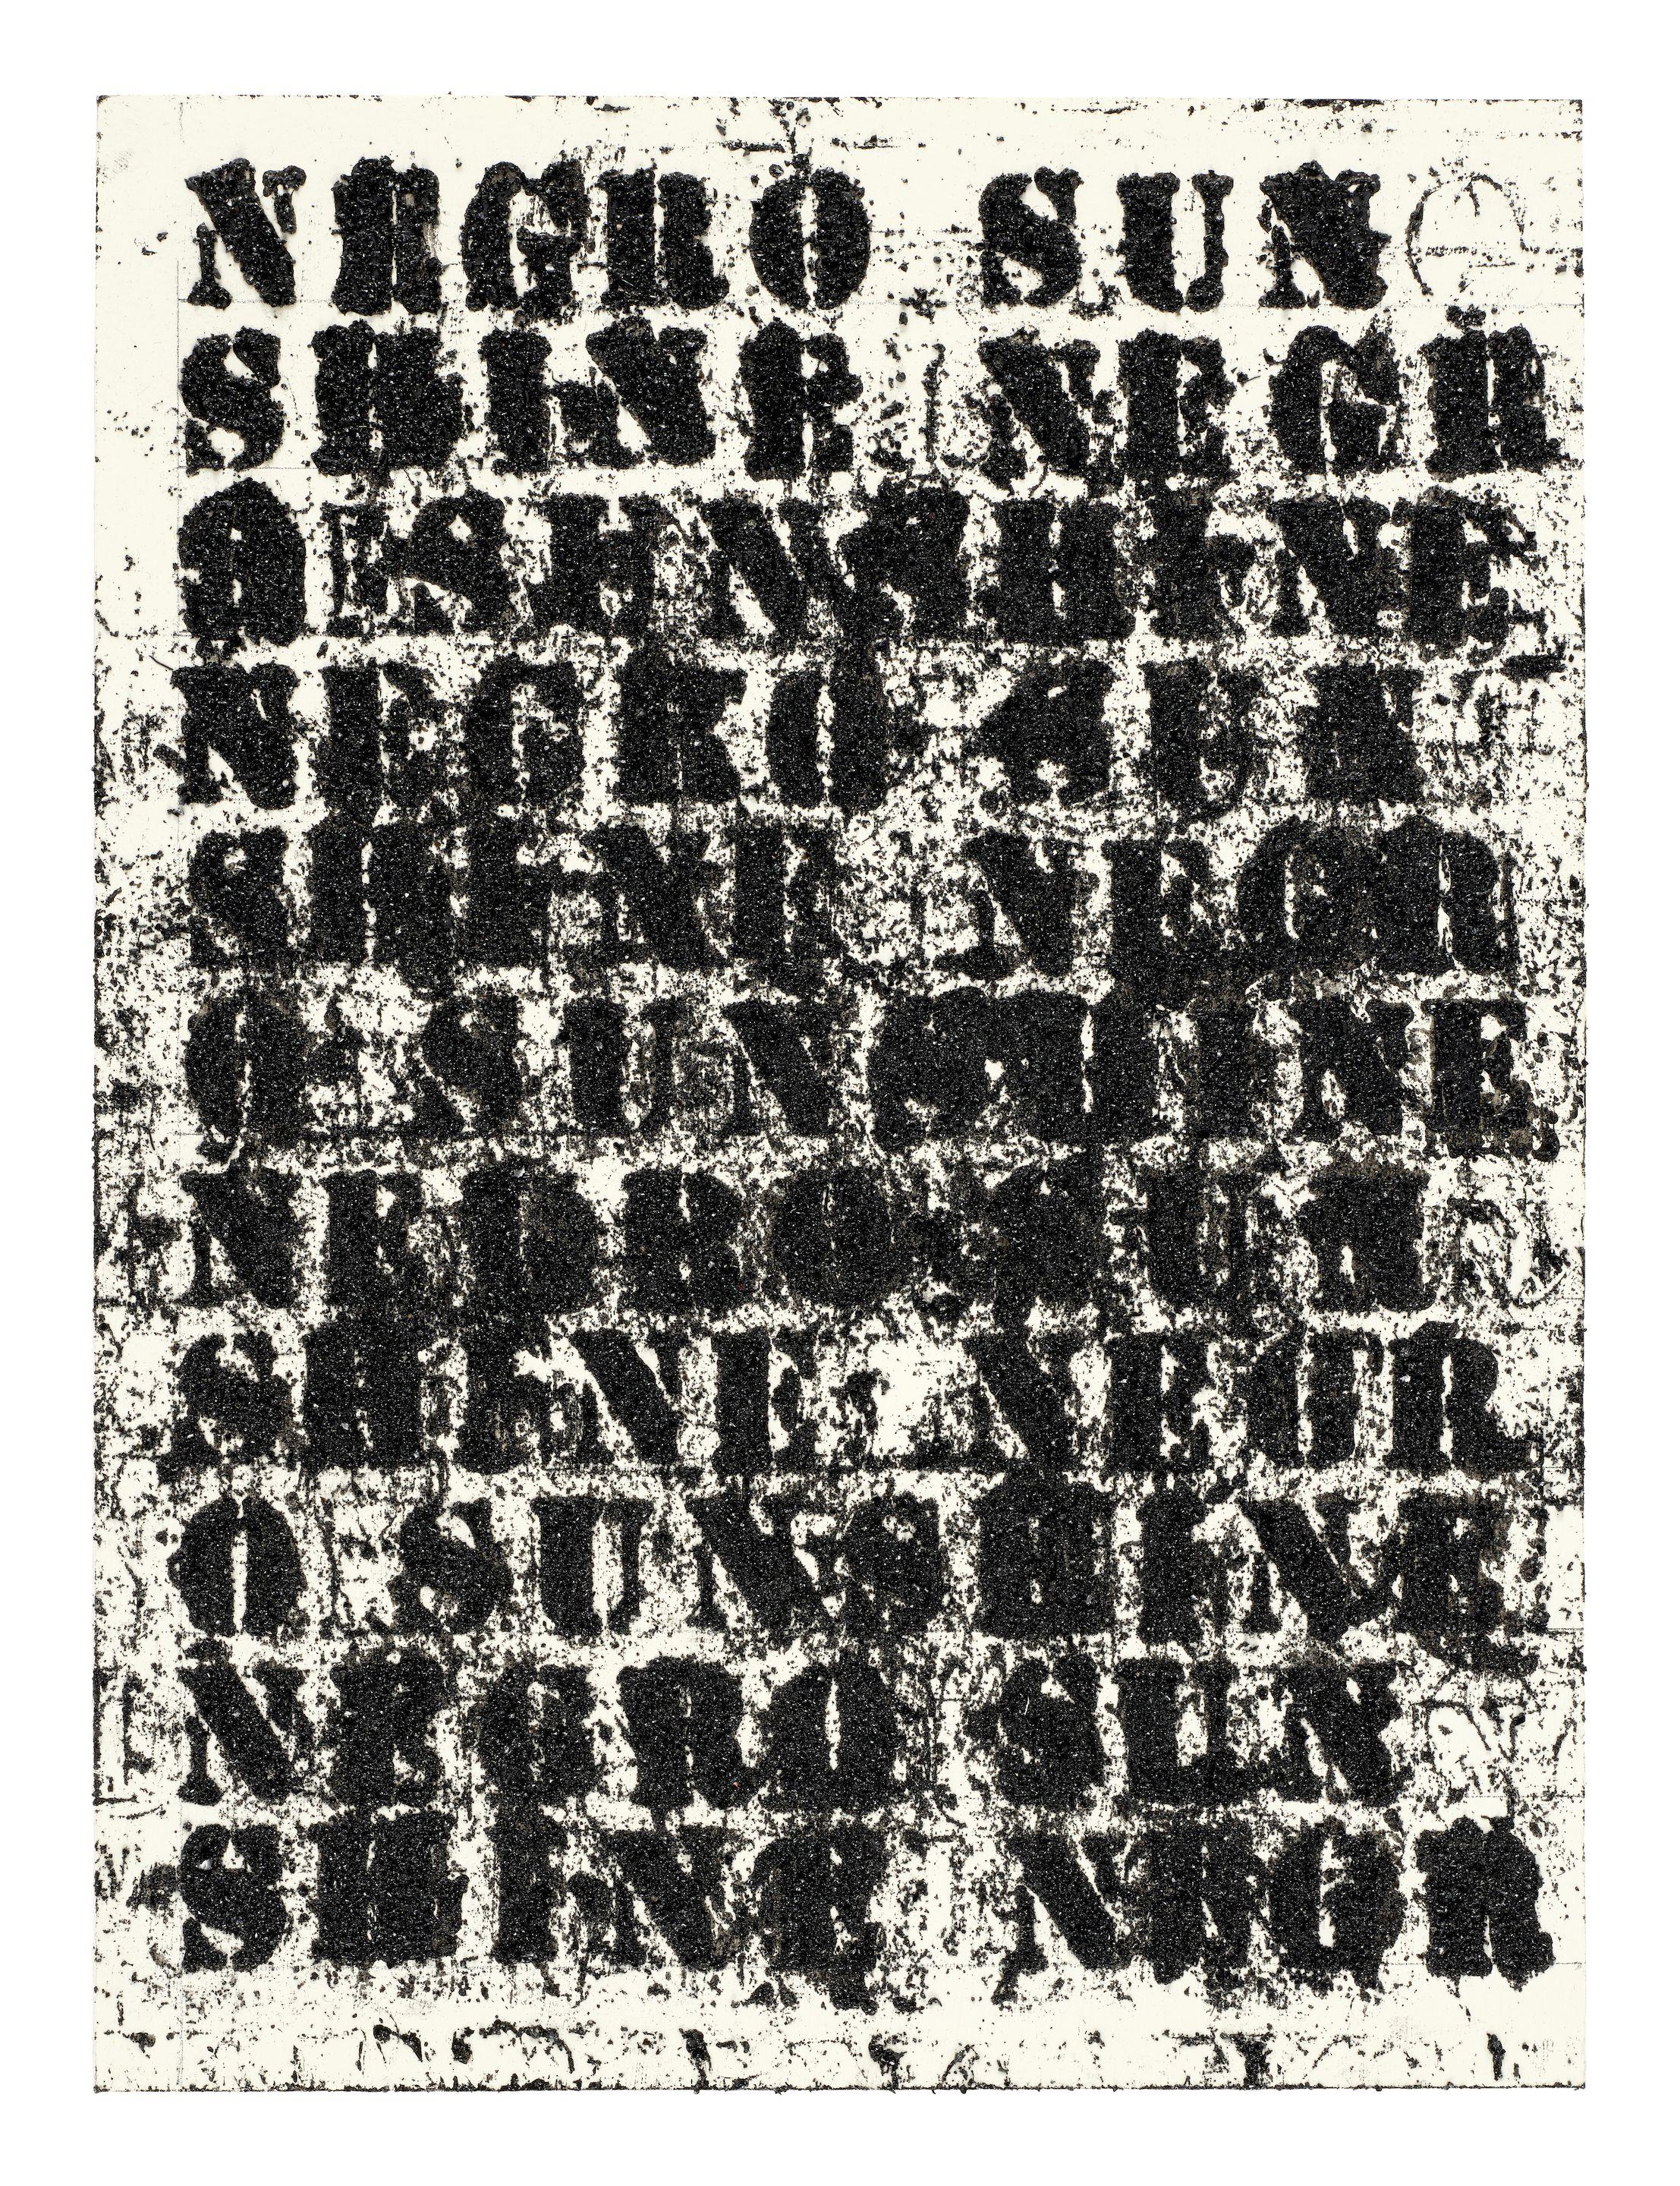 NEGRO SUN
SHINE NEGR
O SUNSHINE
NEGRO SUN
SHINE NEGR
O SUNSHINE
NEGRO SUN
SHINE NEGR
O SUNSHINE
NEGRO SUN
SHINE NEGR